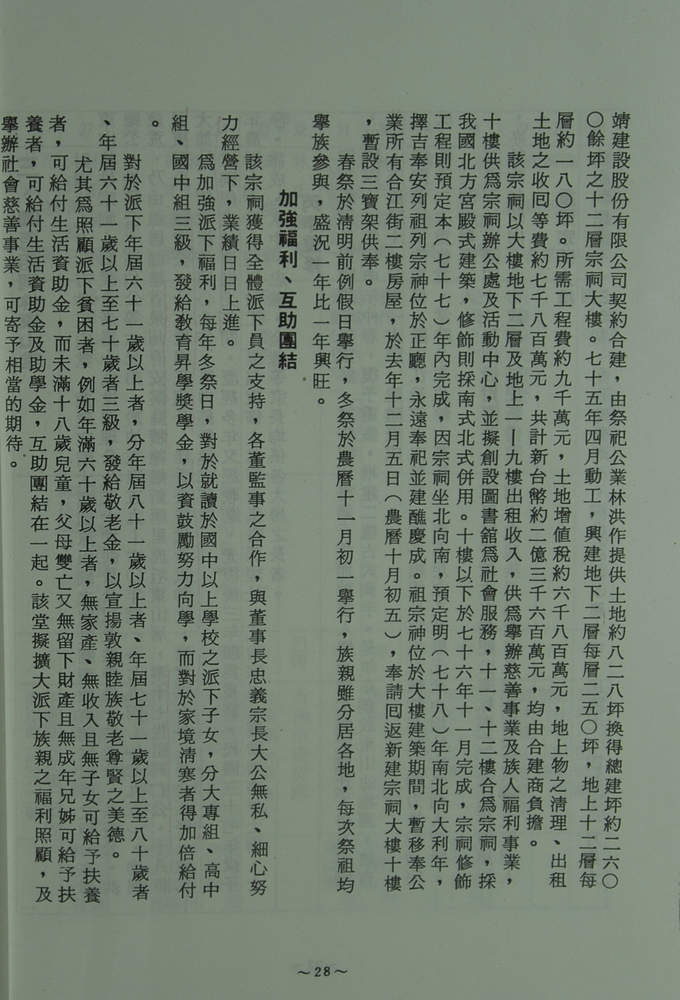 靖建設股份有限公司契約合建，由祭祀公業林洪作提供土地約八二八坪換得總建坪約二六〇
〇餘坪之十二層宗祠大樓。七十五年四月動工，興建地下二層每層二五〇坪，地上十二層每
層約一八〇坪。所需工程費約九千萬元，土地增值稅約六千八百萬元，地上物之清理、出租
土地之收回等費約七千八百萬元，共計新台幣約二億三千六百萬元，均由合建商負擔。
該宗祠以大樓地下二層及地上一－九樓出租收入，供為舉辦慈善事業及族人福利事業，
十樓供為宗祠辦公處及活動中心，並擬創設圖書館為社會服務，十一、十二樓合為宗祠，採
我國北方宮殿式建築，修飾則採南式北式併用。十樓以下於七十六年十一月完成，宗祠修飾
工程則預定本（七十七）年內完成，因宗祠坐北向南，預定明（七十八）年南北向大利年，
擇吉奉安列祖列宗神位於正廳，永遠奉祀並建醮慶成。祖宗神位於大樓建築期間，暫移奉公
業所有合江街二樓房屋，於去年十二月五日（農曆十月初五），奉請回返新建宗祠大樓十樓
，暫設三寶架供奉。
春祭於淸明前例假日舉行，冬祭於農曆十一月初一舉行，族親雖分居各地，每次祭祖均
舉族參與，盛況一年比一年興旺。
加強福利、互助團結
該宗祠獲得全體派下員之支持，各董監事之合作，與董事長忠義宗長大公無私、細心努
力經營下，業績日日上進。
為加強派下福利，每年冬祭日，對於就讀於國中以上學校之派下子女，分大專組、高中
組、國中組三級，發給教育昇學獎學金，以資鼓勵努力向學，而對於家境淸寒者得加倍給付
。
對於派下年屆六十一歲以上者，分年屆八十一歲以上者、年屆七十一歲以上至八十歲者
、年屆六十一歲以上至七十歲者三級，發給敬老金，以宣揚敦親睦族敬老尊賢之美德。
尤其為照顧派下貧困者，例如年滿六十歲以上者，無家產、無收入且無子女可給予扶養
者，可給付生活資助金，而未滿十八歲兒童，父母雙亡又無留下財產且無成年兄姊可給予扶
養者，可給付生活資助金及助學金，互助團結在一起。該堂擬擴大派下族親之福利照顧，及
舉辦社會慈善事業，可寄予相當的期待。
～28～